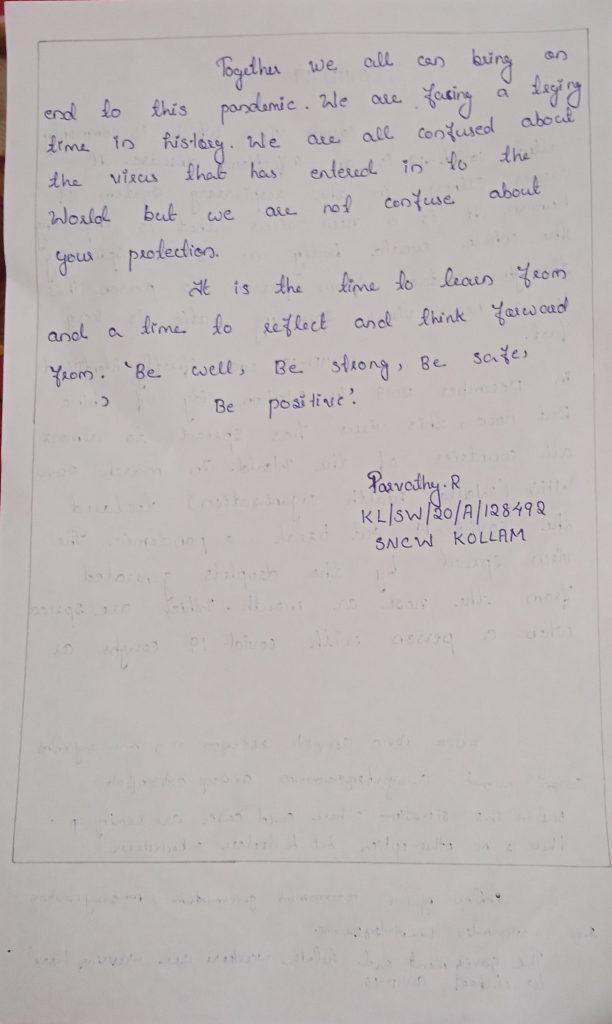 Together we all can bring an
end to this pandemic. We are facing a teging
time in history. We are all confused about
the virus that has entered in to the
World but we are not confuse about
your protection.
It is the time to learn from
and a time to reflect and think forward
from. 'Be well, Be strong, Be safe,
Be positive'.
Parvathy.R
KL/SW/20/A/128492
SNCW KOLLAM